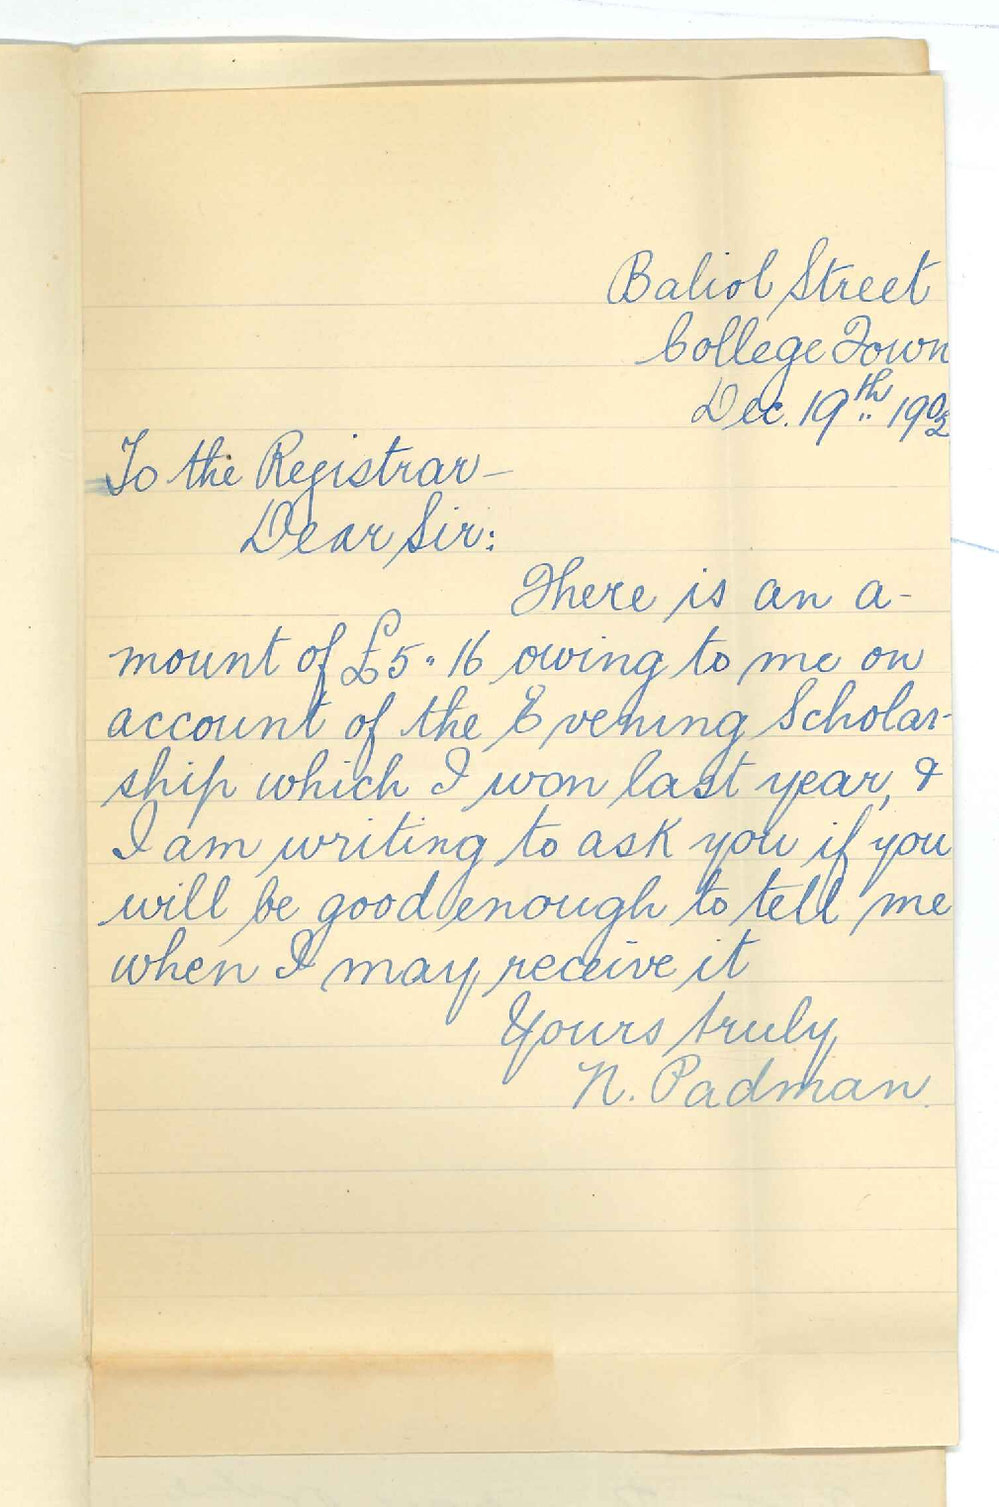 Baliol Street
College Town
Dec. 19th 1902
To the Registrar –
Dear Sir:
There is an a-
mount of £5 " 16 owing to me on
account of the Evening Scholar-
ship which I won last year, &
I am writing to ask you if you
will be good enough to tell me
when I may receive it
Yours truly
N. Padman.